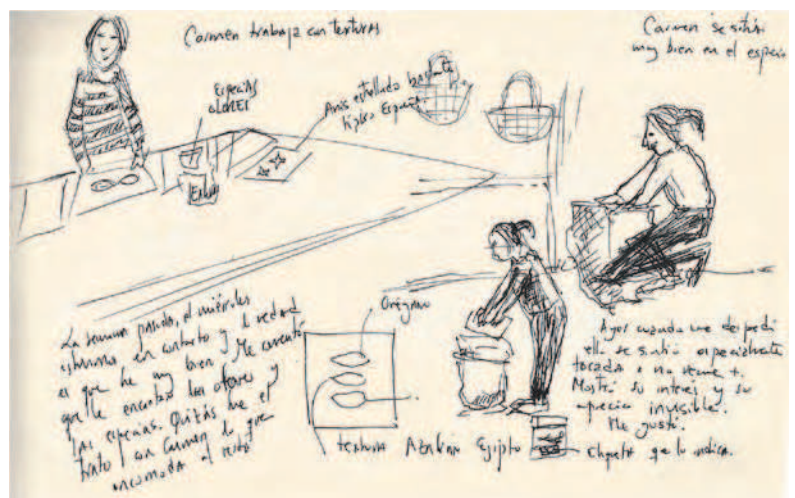 Carmen trabaja con texturas
Carmen se sintió
muy bien en el espacio
ESPECIAS
OLORES
Anís estrellado
Egipto España
La semana pasada, el miércoles
estuvimos en contacto y la verdad
es que fue muy bien. Me comentó
que le encantan los olores y
las especias. Quizás fue el
trato con Carmen lo que
al resto
Orégano
textura Egipto
Etiqueta que lo indica.
Ayer cuando me despedí
ella se sintió especialmente
tocada
Mostró su interés y su
aprecio invisible.
Me gustó.